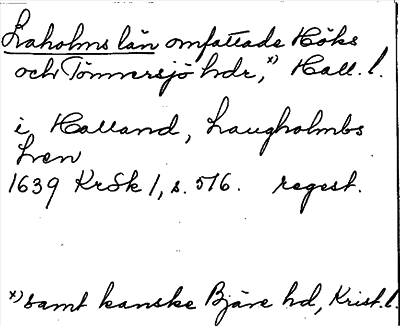 Laholms län omfattade Höks
och Tönnersjö hdr,x) Hall. l.
i Halland, Laugholmbs
Lven
1639 KrSk 1, s. 516. regest.
x) samt kanske Bjäre hd, Krist. l.